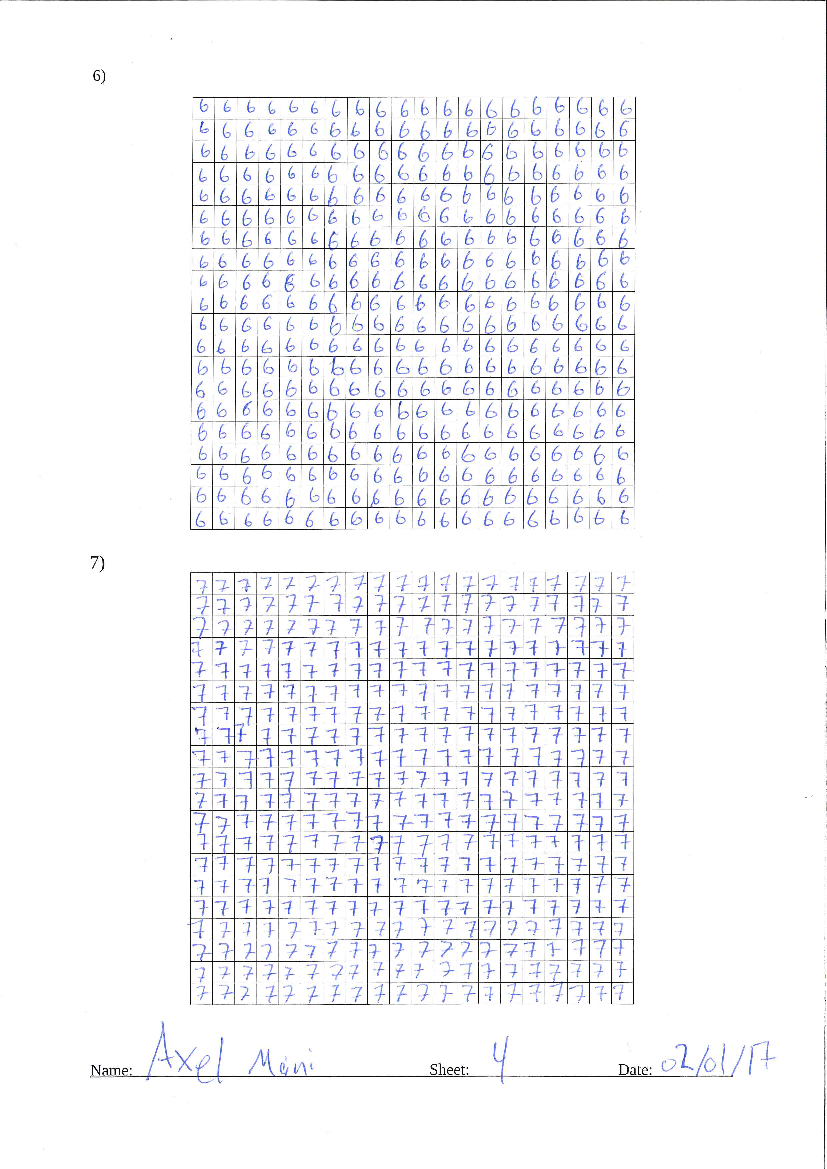 6)
6 6 6 6 6 6 6 6 6 6 6 6 6 6 6 6 6 6 6 6
6 6 6 6 6 6 6 6 6 6 6 6 6 6 6 6 6 6 6 6
6 6 6 6 6 6 6 6 6 6 6 6 6 6 6 6 6 6 6 6
6 6 6 6 6 6 6 6 6 6 6 6 6 6 6 6 6 6 6 6
6 6 6 6 6 6 6 6 6 6 6 6 6 6 6 6 6 6 6 6
6 6 6 6 6 6 6 6 6 6 6 6 6 6 6 6 6 6 6 6
6 6 6 6 6 6 6 6 6 6 6 6 6 6 6 6 6 6 6 6
6 6 6 6 6 6 6 6 6 6 6 6 6 6 6 6 6 6 6 6
6 6 6 6 6 6 6 6 6 6 6 6 6 6 6 6 6 6 6 6
6 6 6 6 6 6 6 6 6 6 6 6 6 6 6 6 6 6 6 6
6 6 6 6 6 6 6 6 6 6 6 6 6 6 6 6 6 6 6 6
6 6 6 6 6 6 6 6 6 6 6 6 6 6 6 6 6 6 6 6
6 6 6 6 6 6 6 6 6 6 6 6 6 6 6 6 6 6 6 6
6 6 6 6 6 6 6 6 6 6 6 6 6 6 6 6 6 6 6 6
6 6 6 6 6 6 6 6 6 6 6 6 6 6 6 6 6 6 6 6
6 6 6 6 6 6 6 6 6 6 6 6 6 6 6 6 6 6 6 6
6 6 6 6 6 6 6 6 6 6 6 6 6 6 6 6 6 6 6 6
6 6 6 6 6 6 6 6 6 6 6 6 6 6 6 6 6 6 6 6
6 6 6 6 6 6 6 6 6 6 6 6 6 6 6 6 6 6 6 6
6 6 6 6 6 6 6 6 6 6 6 6 6 6 6 6 6 6 6 6
7)
7 7 7 7 7 7 7 7 7 7 7 7 7 7 7 7 7 7 7 7
7 7 7 7 7 7 7 7 7 7 7 7 7 7 7 7 7 7 7 7
7 7 7 7 7 7 7 7 7 7 7 7 7 7 7 7 7 7 7 7
7 7 7 7 7 7 7 7 7 7 7 7 7 7 7 7 7 7 7 7
7 7 7 7 7 7 7 7 7 7 7 7 7 7 7 7 7 7 7 7
7 7 7 7 7 7 7 7 7 7 7 7 7 7 7 7 7 7 7 7
7 7 7 7 7 7 7 7 7 7 7 7 7 7 7 7 7 7 7 7
7 7 7 7 7 7 7 7 7 7 7 7 7 7 7 7 7 7 7 7
7 7 7 7 7 7 7 7 7 7 7 7 7 7 7 7 7 7 7 7
7 7 7 7 7 7 7 7 7 7 7 7 7 7 7 7 7 7 7 7
7 7 7 7 7 7 7 7 7 7 7 7 7 7 7 7 7 7 7 7
7 7 7 7 7 7 7 7 7 7 7 7 7 7 7 7 7 7 7 7
7 7 7 7 7 7 7 7 7 7 7 7 7 7 7 7 7 7 7 7
7 7 7 7 7 7 7 7 7 7 7 7 7 7 7 7 7 7 7 7
7 7 7 7 7 7 7 7 7 7 7 7 7 7 7 7 7 7 7 7
7 7 7 7 7 7 7 7 7 7 7 7 7 7 7 7 7 7 7 7
7 7 7 7 7 7 7 7 7 7 7 7 7 7 7 7 7 7 7 7
7 7 7 7 7 7 7 7 7 7 7 7 7 7 7 7 7 7 7 7
7 7 7 7 7 7 7 7 7 7 7 7 7 7 7 7 7 7 7 7
7 7 7 7 7 7 7 7 7 7 7 7 7 7 7 7 7 7 7 7
Name: Axel Sheet: 4 Date: 02/01/17